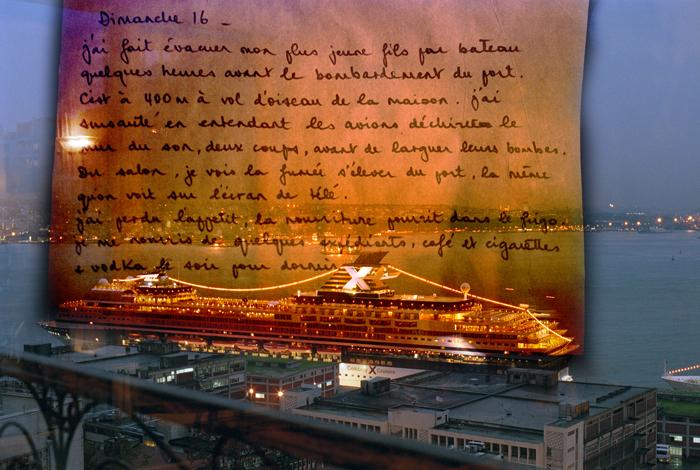 Dimanche 16 -
j'ai fait évacuer mon plus jeune fils par bateau
quelques heures avant le bombardement du port.
C'est à 400 m à vol d'oiseau de la maison. j'ai
sursauté en entendant les avions déchirer le
mur du son, deux coups, avant de larguer leurs bombes.
Du salon, je vois la fumée s'élever du port, la même
qu'on voit sur l'écran de télé.
j'ai perdu l'appétit, la nourriture pourrit dans le frigo.
je me nourris de quelques expédients, café et cigarettes
+ vodka le soir pour dormir
X
Celebrity X Cruises